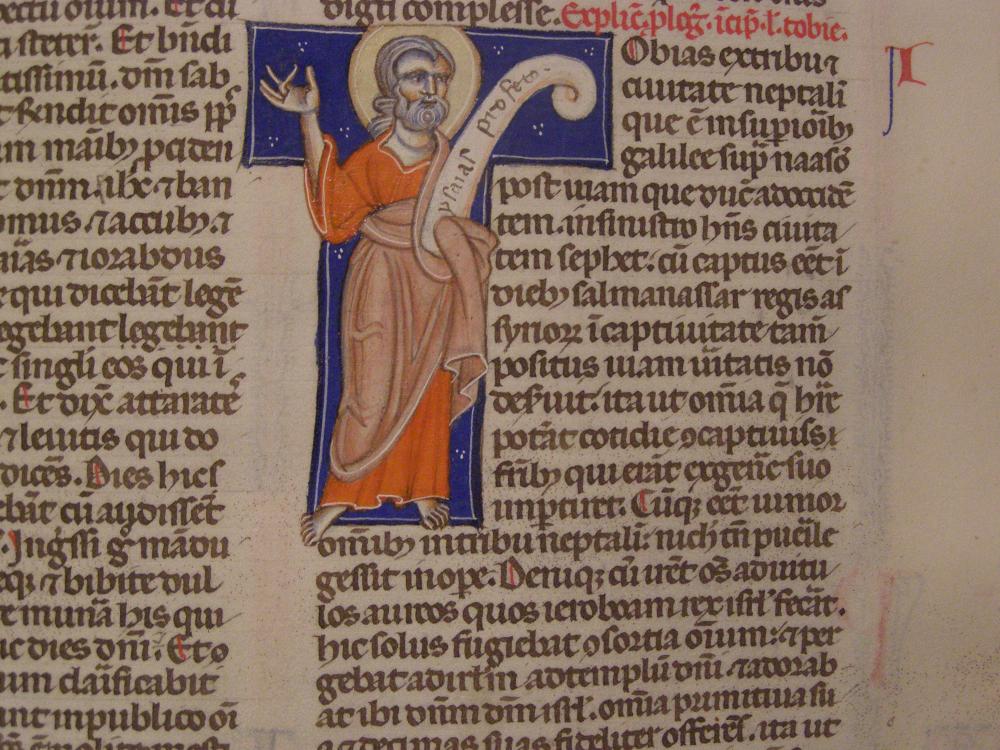 ectu oium. Et cu
a steter. Et bndi
tissimu. dm sab
t Rendit omis pp
um maiby pciden
t dnm. ilix. ⁊ ban
omus. ⁊ accuby. ⁊
aias ⁊ iorabdus
e qui dicebat lege
egebant legebant
t singli eos qui i
. Et dix attarate
⁊ leuitis qui do
dices. Dies hic s
ebat cu audisset
. Ingssi g madu
eq; ⁊ bibite dul
e muna his qui
ic dies dni. Et o
um daificabit
unt in publico oi
digti complesse. Explic. plog. icip. l. tobie.
Obias ex tribu ⁊
ciuitate neptali
que e in supioiby
galilee sup naaso
post uiam que duc ad occide
tem. in sinistro hns ciuita
tem sephet. cu captus eet i
dieby salmanassar regis as
syrioꝝ i captiuitate tam
positus uiam uitatis no
deseruit. ita ut omia q hre
potat cotidie ꝯcaptiuis si
friby qui erat ex gene suo
imptiret. Cuq; eet iunior
omiby in tribu neptali. nich tn puile
gessit in ope. Deniq; cu iret os ad uitu
los aureos quos ieroboam rex isrl fecat.
hic solus fugiebat ꝯsortia oium. ⁊ per
gebat ad irlm ad templu dni. ⁊ adorab
at ibi dnm dm isrl. omia primitiua su
a ⁊ decimas suas fideliter offeres. ita ut
ysaias profeta.
I